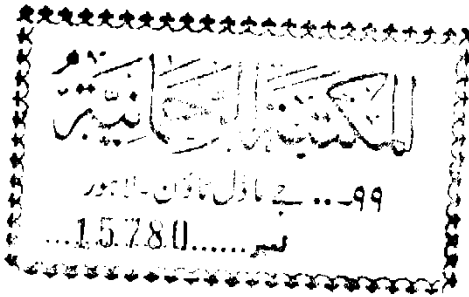 المكتبة الرحمانية
۹۹ ... جے ماڈل ٹاؤن - لاہور
نمبر......15780...